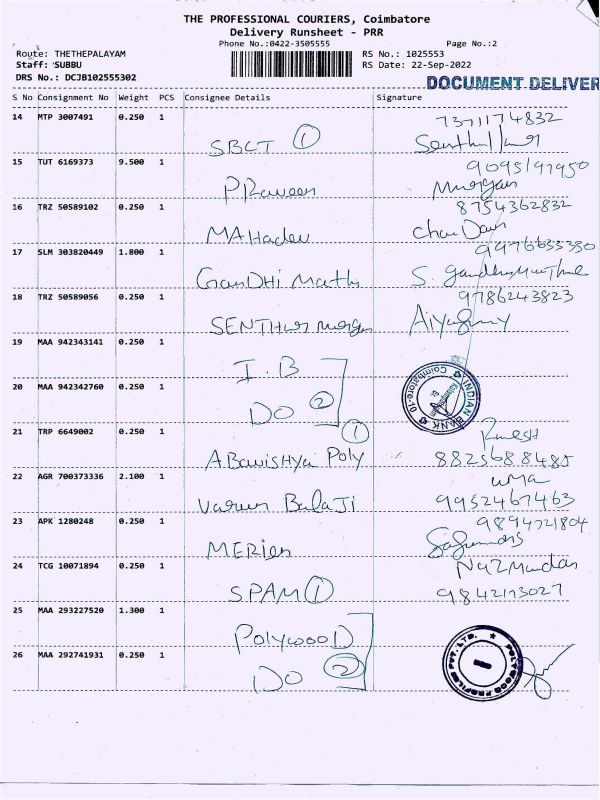 THE PROFESSIONAL COURIERS, Coimbatore
Delivery Runsheet - PRR
Phone No.:0422-3505555
Page No.:2
Route: THETHEPALAYAM
RS No.: 1025553
Staff: SUBBU
RS Date: 22-Sep-2022
DRS No.: DCJB102555302
DOCUMENT DELIVER
S No Consignment No Weight PCS Consignee Details Signature
14 MTP 3007491 0.250 1 SBCT 1 7371174832
15 TUT 6169373 9.500 1 PRaveen Murugan
16 TRZ 50589102 0.250 1 MAHadev 8754362832
17 SLM 303820449 1.800 1 GanDHi Mathi
18 TRZ 50589056 0.250 1 9786243823
19 MAA 942343141 0.250 1 I B
20 MAA 942342760 0.250 1 DO 2
INDIAN BANK
Coimbatore
21 TRP 6649002 0.250 1 ABanishya Poly 1
22 AGR 700373336 2.100 1 Varun BalaJi uma 9952467463
23 APK 1280248 0.250 1 9894721804
24 TCG 10071894 0.250 1 SPAM 1
25 MAA 293227520 1.300 1 PolywooD
26 MAA 292741931 0.250 1 DO 2
POLYWOOD PROFILES PVT. LTD.